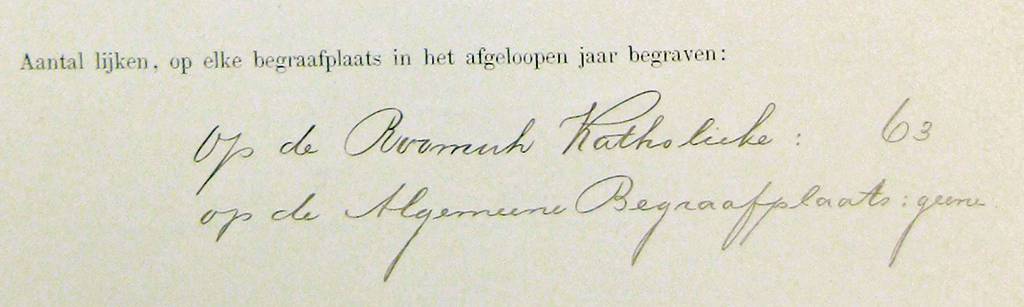 Aantal lijken, op elke begraafplaats in het afgeloopen jaar begraven:
Op de Roomsch Katholieke : 63
op de Algemeene Begraafplaats : geene